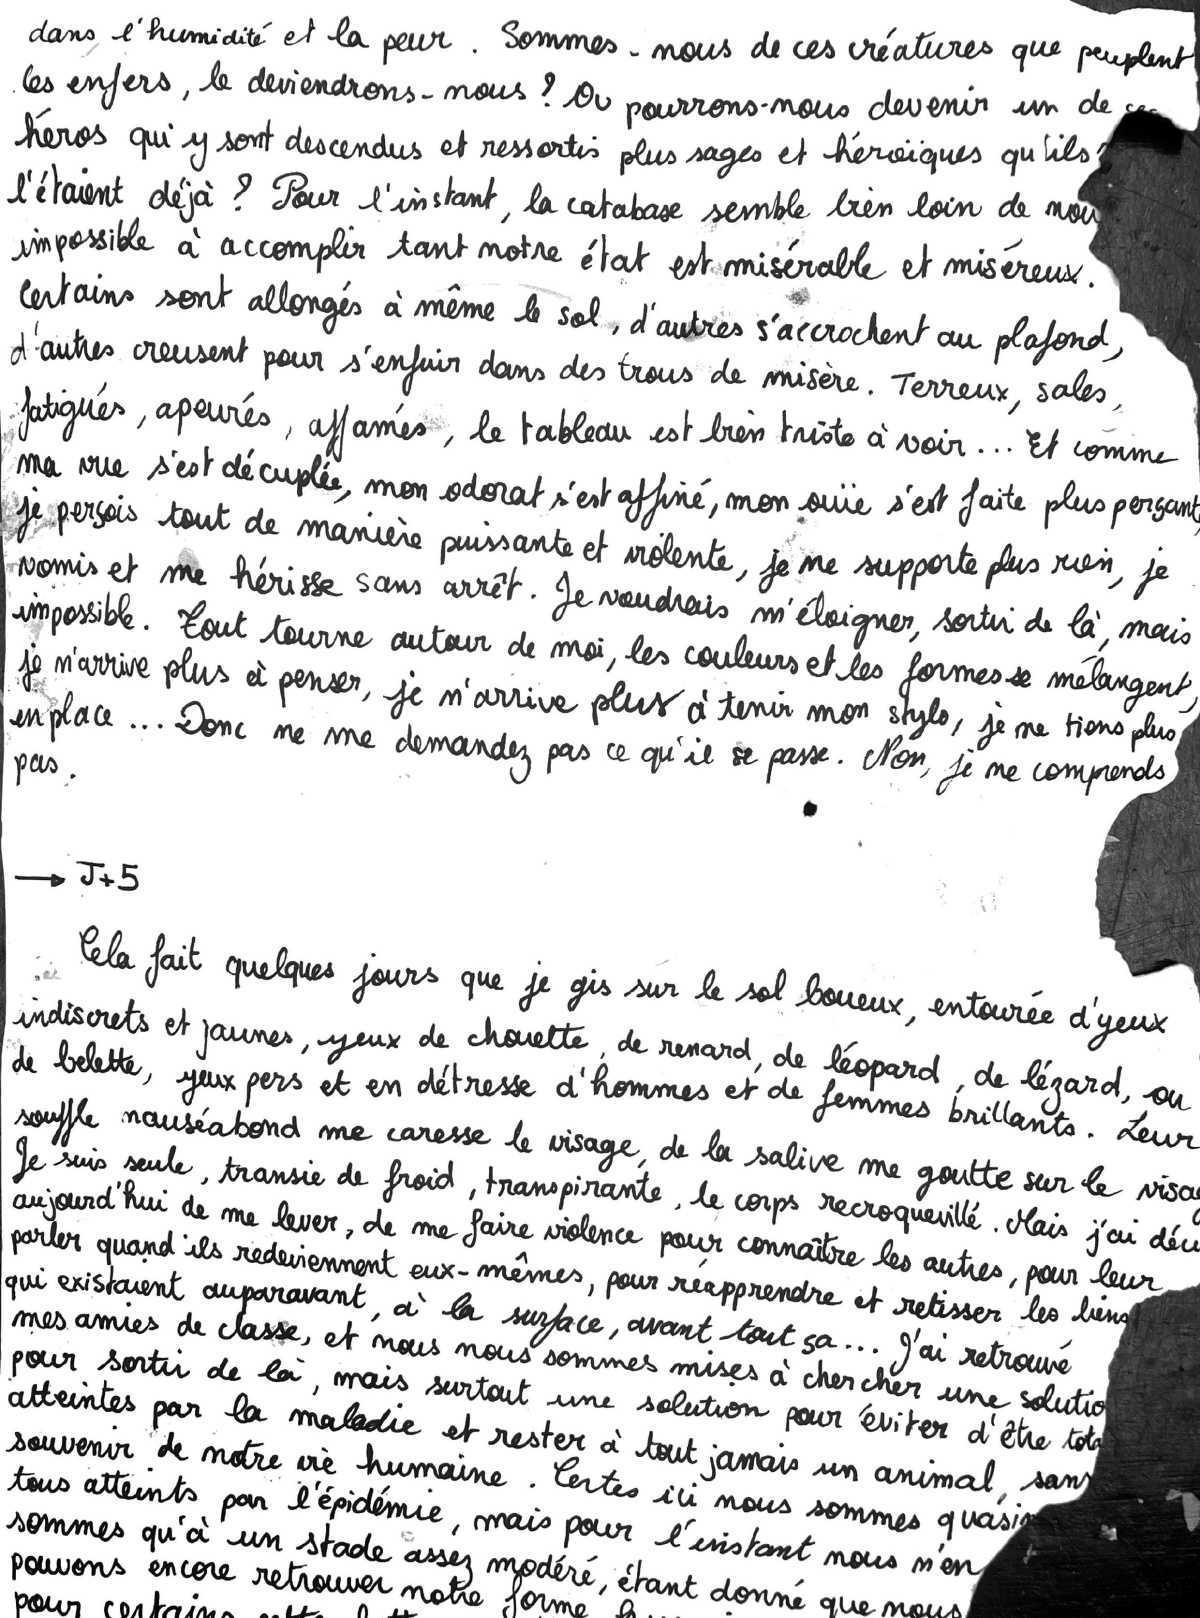 dans l'humidité et la peur. Sommes-nous de ces créatures que peuplent
les enfers, le deviendrons-nous ? Ou pourrons-nous devenir un de
héros qui y sont descendus et ressortis plus sages et héroïques qu'ils
l'étaient déjà ? Pour l'instant, la catabase semble bien loin de nou
impossible à accomplir tant notre état est misérable et miséreux.
Certains sont allongés à même le sol, d'autres s'accrochent au plafond,
d'autres creusent pour s'enfuir dans des trous de misère. Terreux, sales,
fatigués, apeurés, affamés, le tableau est bien triste à voir... Et comme
ma vue s'est décuplée, mon odorat s'est affiné, mon ouïe s'est faite plus perçant
je perçois tout de manière puissante et violente, je ne supporte plus rien, je
vomis et me hérisse sans arrêt. Je voudrais m'éloigner, sortir de là, mais
impossible. Tout tourne autour de moi, les couleurs et les formes se mélangent,
je n'arrive plus à penser, je n'arrive plus à tenir mon stylo, je ne tiens plus
en place ... Donc ne me demandez pas ce qu'il se passe. Non, je ne comprends
pas.
→ J+5
Cela fait quelques jours que je gis sur le sol boueux, entourée d'yeux
indiscrets et jaunes, yeux de chouette, de renard, de léopard, de lézard, ou
de belette, yeux pers et en détresse d'hommes et de femmes brillants. Leur
souffle nauséabond me caresse le visage, de la salive me goutte sur le visag
Je suis seule, transie de froid, transpirante, le corps recroquevillé. Mais j'ai déci
aujourd'hui de me lever, de me faire violence pour connaître les autres, pour leur
parler quand ils redeviennent eux-mêmes, pour réapprendre et retisser les liens
qui existaient auparavant, à la surface, avant tout ça... J'ai retrouvé
mes amies de classe, et nous nous sommes mises à chercher une solutio
pour sortir de là, mais surtout une solution pour éviter d'être tota
atteintes par la maladie et rester à tout jamais un animal, sans
souvenir de notre vie humaine. Certes ici nous sommes quasim
tous atteints par l'épidémie, mais pour l'instant nous n'en
sommes qu'à un stade assez modéré, étant donné que nous
pouvons encore retrouver notre forme
pour certains cette